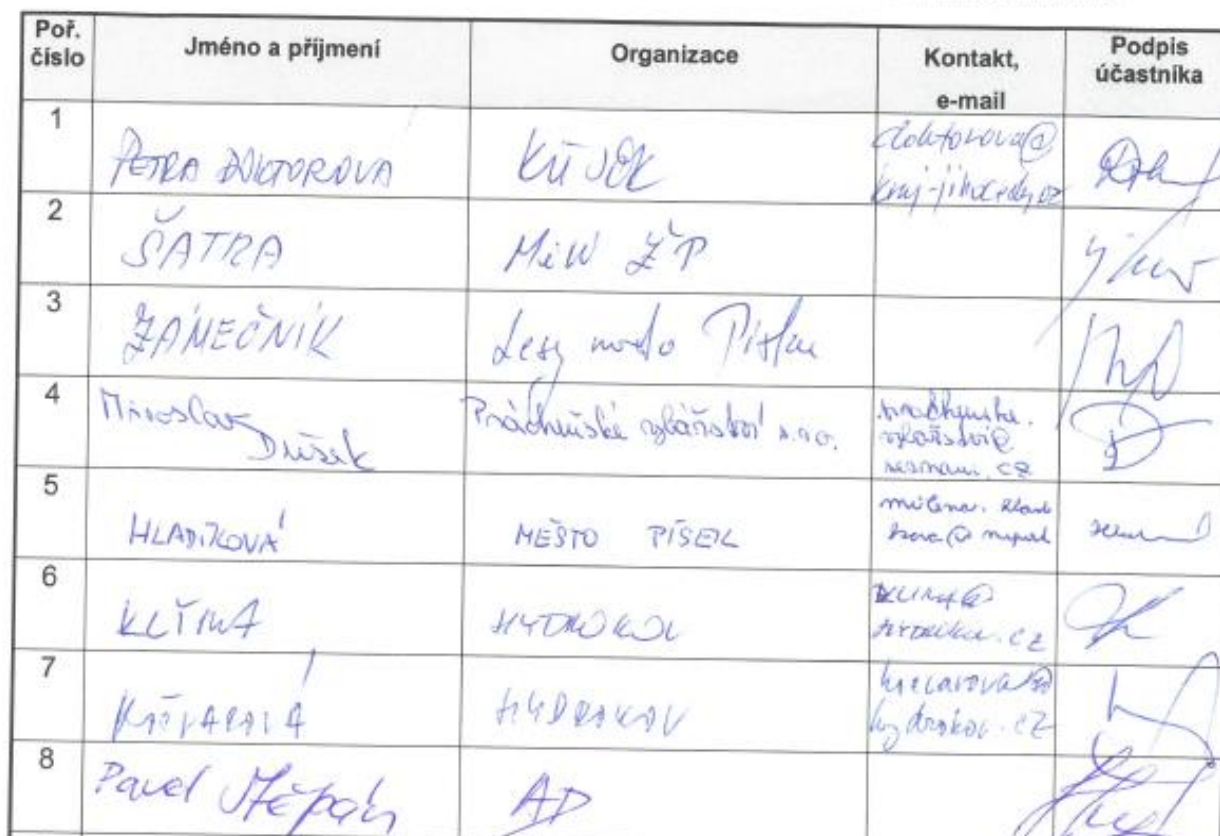 Poř. číslo Jméno a příjmení Organizace Kontakt, e-mail Podpis účastníka
1 PETRA DOKTOROVA KÚ JČK doktorova@
kraj-jihocesky.cz
2 ŠATRA MiN ŽP
3 ZÁMEČNÍK Lesy města Písku
4 Miroslav Dušek Prácheňské rybářství s.r.o. prachenske.
rybarstvi@
seznam.cz
5 HLADÍKOVÁ MĚSTO PÍSEK milena.
6 KLÍMA HYDROKOV KLIMA@
7 HYDROKOV
hydrokov.cz
8 Pavel Štěpán AD